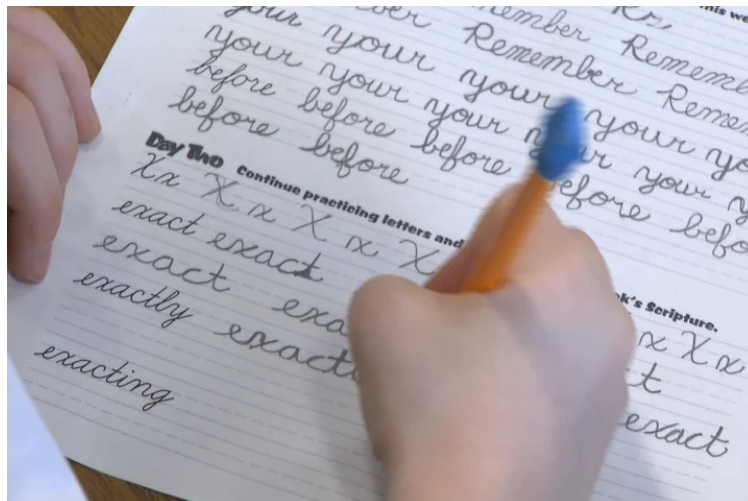 Rs,
this we
ber Remember Rememb
your your Remember Reme
your your your your yo
before your your your your y
before before before before befo
before before
Day Two Continue practicing letters and k's Scripture.
Xx X x X x X x X x
exact exact t
exact exa exact
exactly exact
exacting